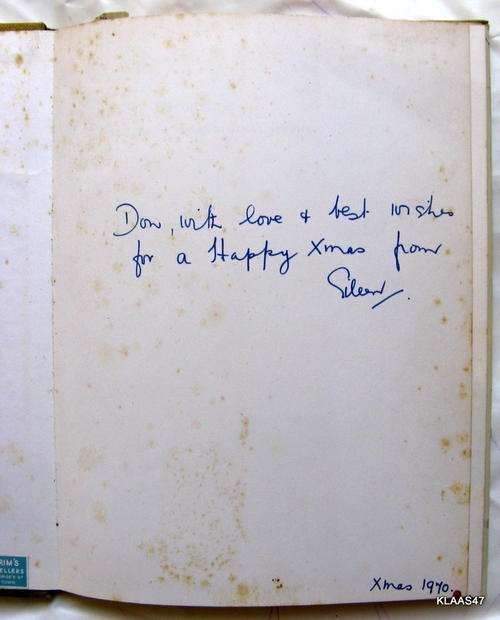 Don, with love & best wishes
for a Happy Xmas from
Eileen.
Xmas 1970.
KLAAS47
RIM'S
ELLERS
ORGE'S ST
TOWN